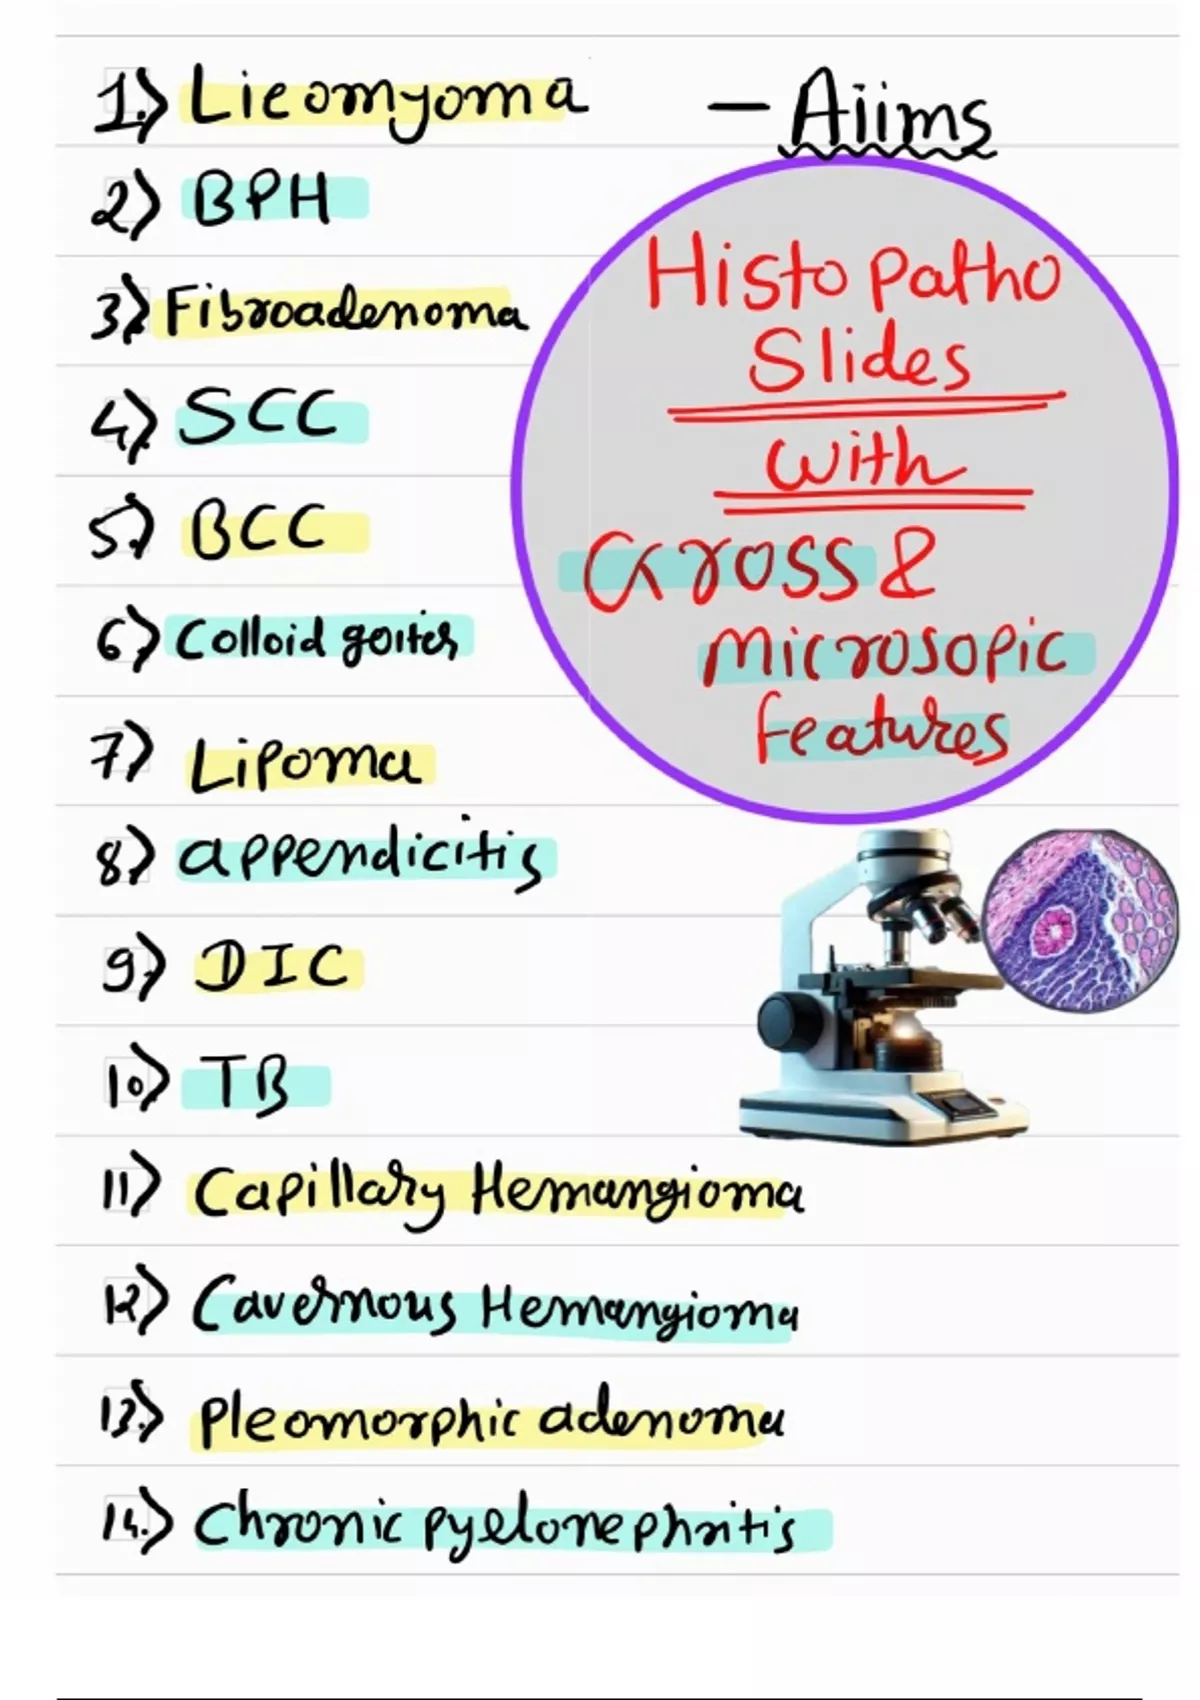 1.) Lieomyoma - Aiims
2) BPH
3) Fibroadenoma
4) SCC
5.) BCC
6) Colloid goiter
7) Lipoma
8) appendicitis
9) DIC
10) TB
11) Capillary Hemangioma
12) Cavernous Hemangioma
13.) Pleomorphic adenoma
14.) Chronic pyelonephritis
Histo patho
Slides
with
Gross &
Microsopic
features